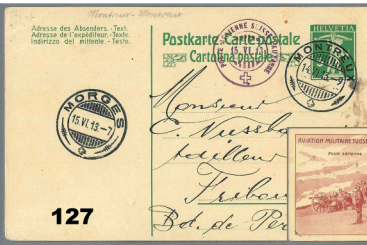 Montreux - Montreux
Adresse des Absenders. - Text.
Adresse de l'expéditeur. - Texte.
Indirizzo del mittente. - Testo.
Postkarte-Carte postale
Cartolina postale
HELVETIA
POSTE AÉRIENNE
15. VI. 13
MONTREUX
15. VI. 13.-9
MORGES
15. VI. 13.-7
Monsieur
E. Nussba
Fribou
Bd. de Per
AVIATION MILITAIRE SUISSE
Poste aérienne
127